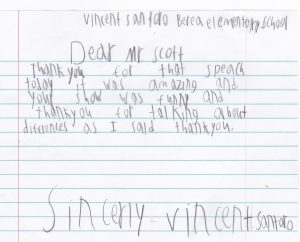 vincent santoro Berea elementary school
Dear Mr scott
thank you for that speach
today it was amazing and
your show was funny and
thankyou for talking about
diffences as I said thankyou.
Sincerly - vincent santoro